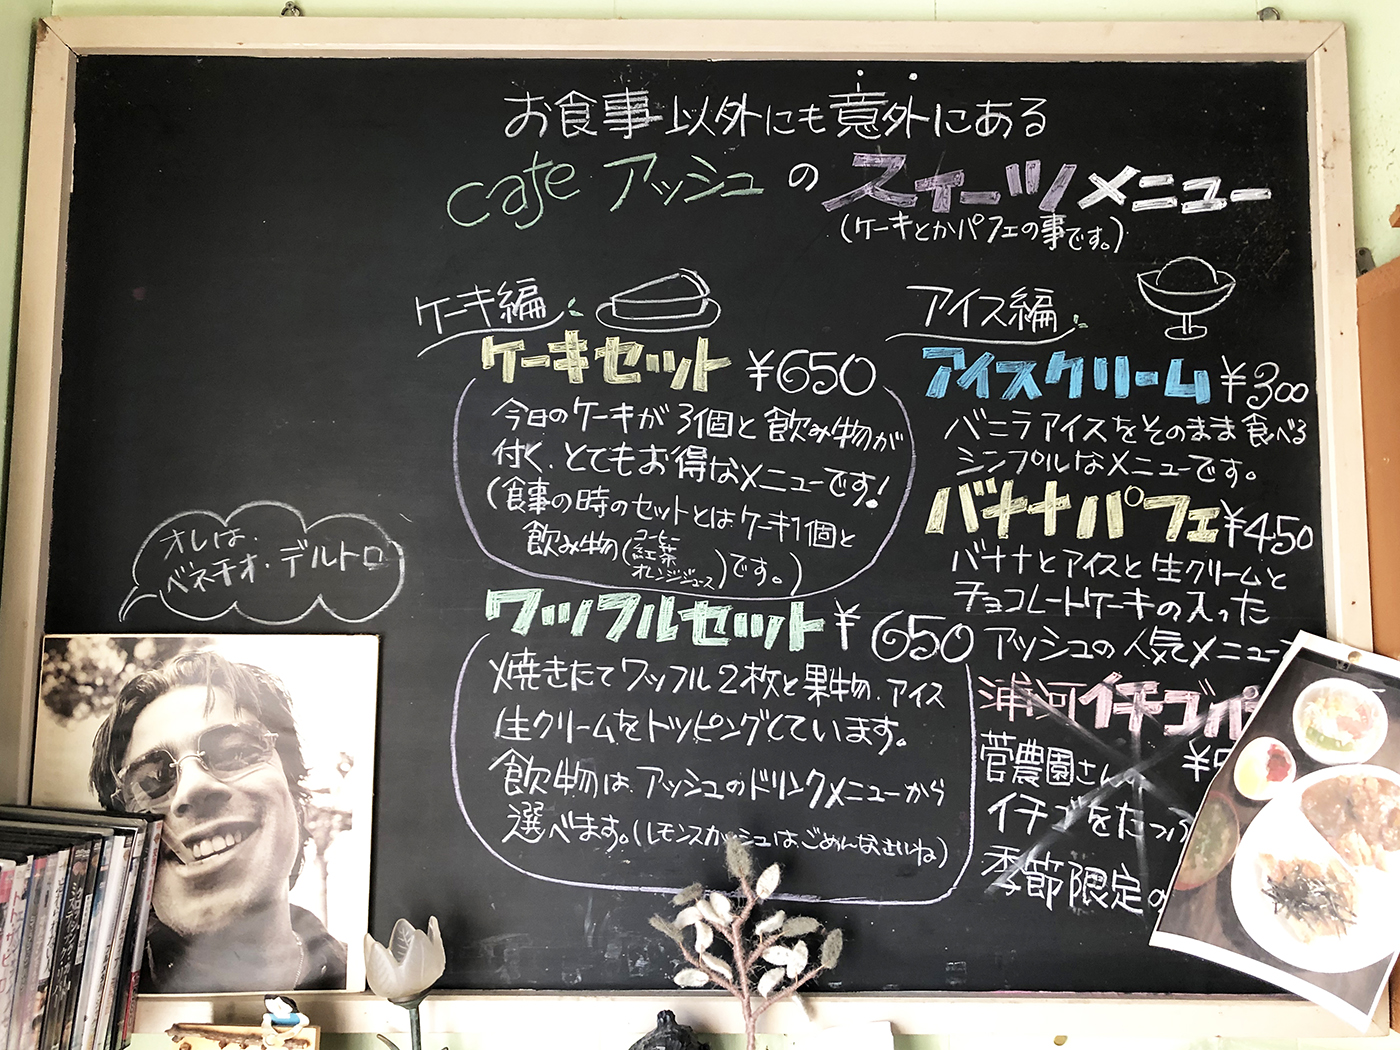 お食事以外にも意外にある
cafe アッシュ の スイーツメニュー
(ケーキとかパフェの事です。)
ケーキ編
ケーキセット ¥650
今日のケーキが3個と飲み物が
付く、とてもお得なメニューです!
(食事の時のセットとはケーキ1個と
飲み物(コーヒー
紅茶
オレンジジュース)です。)
ワッフルセット ¥650
焼きたてワッフル2枚と果物、アイス
生クリームをトッピングしています。
飲物は、アッシュのドリンクメニューから
選べます。(レモンスカッシュはごめんなさいね)
アイス編
アイスクリーム ¥300
バニラアイスをそのまま食べる
シンプルなメニューです。
バナナパフェ ¥450
バナナとアイスと生クリームと
チョコレートケーキの入った
アッシュの人気メニュー
浦河イチゴパ
¥
菅農園さん
イチゴをたっぷ
季節限定の
オレは、
ベネチオ・デルトロ